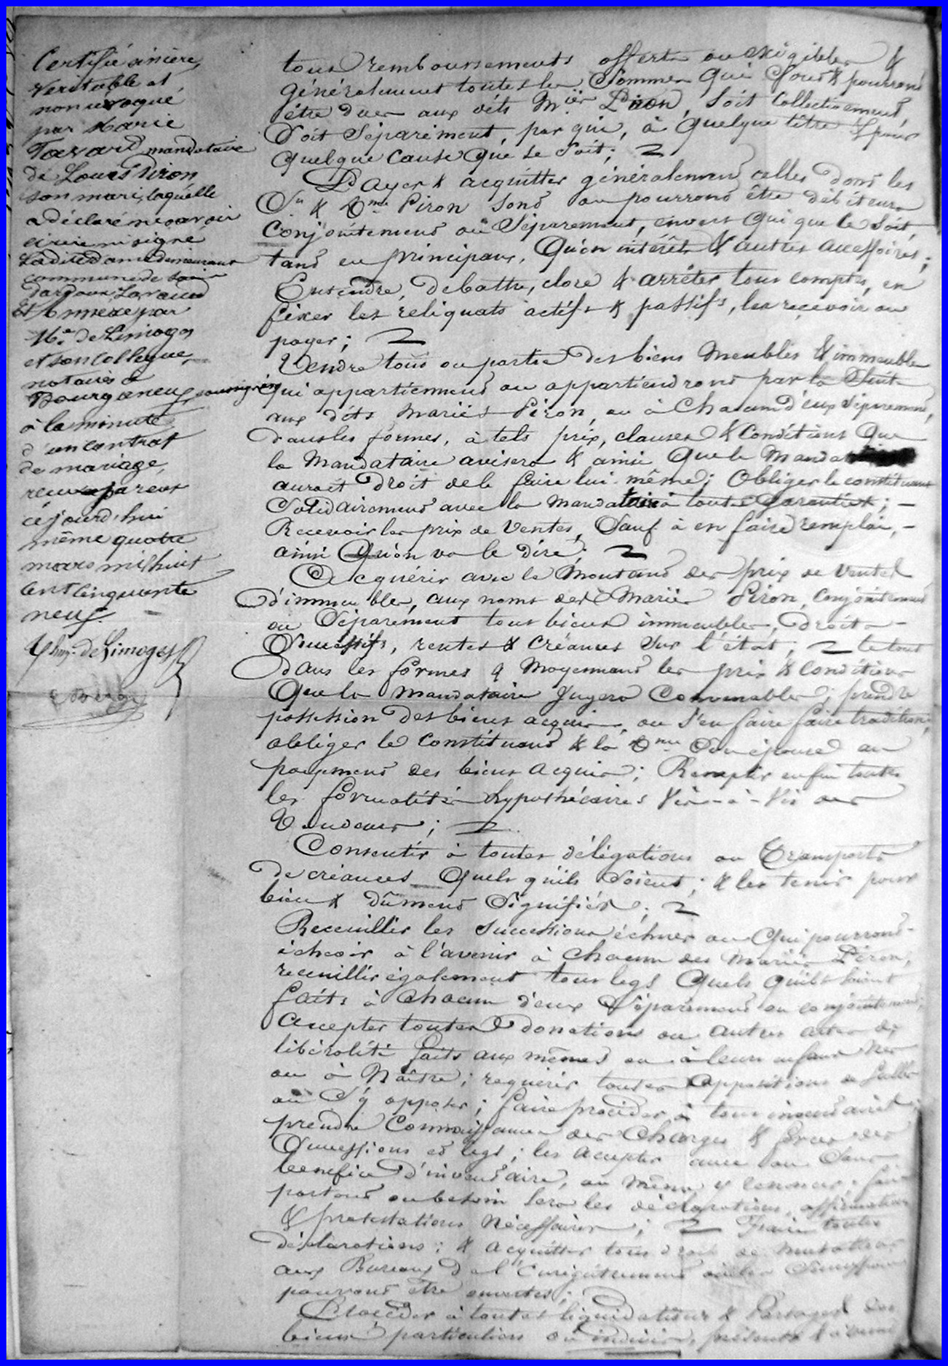 Certifié sincère
véritable et
non révoqué
par Marie
Tavard mandataire
de Louis Piron
son mari, laquelle
a déclaré ne savoir
écrire ni signer
Ladite dame demeurant
commune de
et Annexé par
Me de Limoges
et son collègue
notaires à
Bourganeuf soussignés
à la minute
d'un contrat
de mariage,
reçu par eux
cejourd'hui
même quatre
mars mil huit
cent cinquante
neuf. —
de Limoges
tous remboursements offerts ou exigibles &
généralement toutes les Sommes qui Sont & pourront
être dues aux dits Mariés Piron, Soit Collectivement,
Soit Séparément par qui, à quelque titre & pour
quelque cause que ce Soit;
Payer & acquitter généralement celles dont les
Sr & Dme Piron Sont ou pourront être débiteurs
Conjointement ou Séparement, envers qui que ce Soit,
tant en principaux, Qu'en intérêts & autres accessoires;
Entendre, débattre, clore & arrêter tous comptes, en
fixer les reliquats actifs & passifs, les recevoir ou
payer;
Vendre tous ou partie des biens Meubles & immeubles
qui appartiennent ou appartiendront par la Suite
aux dits Mariés Piron, ou à Chacun d'eux Séparement,
dans les formes, à tels prix, clauses & Conditions Que
la Mandataire avisera & ainsi Que le
auroit Droit de le faire lui même; Obliger le constituant
Solidairement avec la Mandataire à toute Garantie; —
Recevoir les prix de Ventes, Sauf à en faire remploi, —
ainsi Qu'on va le dire;
Acquérir avec le Montant des prix de Ventes
d'immeubles, aux noms des Mariés Piron, conjointement
ou Séparement tous biens immeubles, Droits —
Successifs, rentes & créances Sur l'état; le tout
dans les formes & Moyennant les prix & Conditions
Que la Mandataire Jugera Convenables; prendre
possession des biens acquis, ou S'en faire faire tradition,
obliger le Constituant & la Dme Son épouse au
payement des biens acquis; Remplir enfin toutes
les formalités hypothécaires Vis-à-Vis des
Vendeurs;
Consentir à toutes délégations ou Transports
De créances Quels qu'ils Soient; & les tenir pour
bien & dûment Signifiés;
Recueillir les Successions échues ou Qui pourront
échoir à l'avenir à Chacun des Mariés Piron,
recueillir également tous legs Quels qu'ils Soient
faits à Chacun d'eux Séparement ou conjointement;
Accepter toutes donations ou autres actes de
libéralité faits aux mêmes ou à leurs enfans Nés
ou à Naître; requérir toutes appositions de Scellés
ou S'y opposer; faire procéder à tous inventaires
prendre Connaissance des Charges & forces des
Successions et legs; les accepter avec ou Sans
bénéfice d'inventaire, ou Même y renoncer; faire
partout où besoin sera les déclarations, affirmations
& protestations Nécessaires; Faire toutes
déclarations; & acquitter tous droits de Mutation
aux Bureaux de l'Enregistrement où les Successions
pourront être ouvertes;
Procéder à toutes liquidations & Partages des
biens particuliers ou indivis, présents & à venir